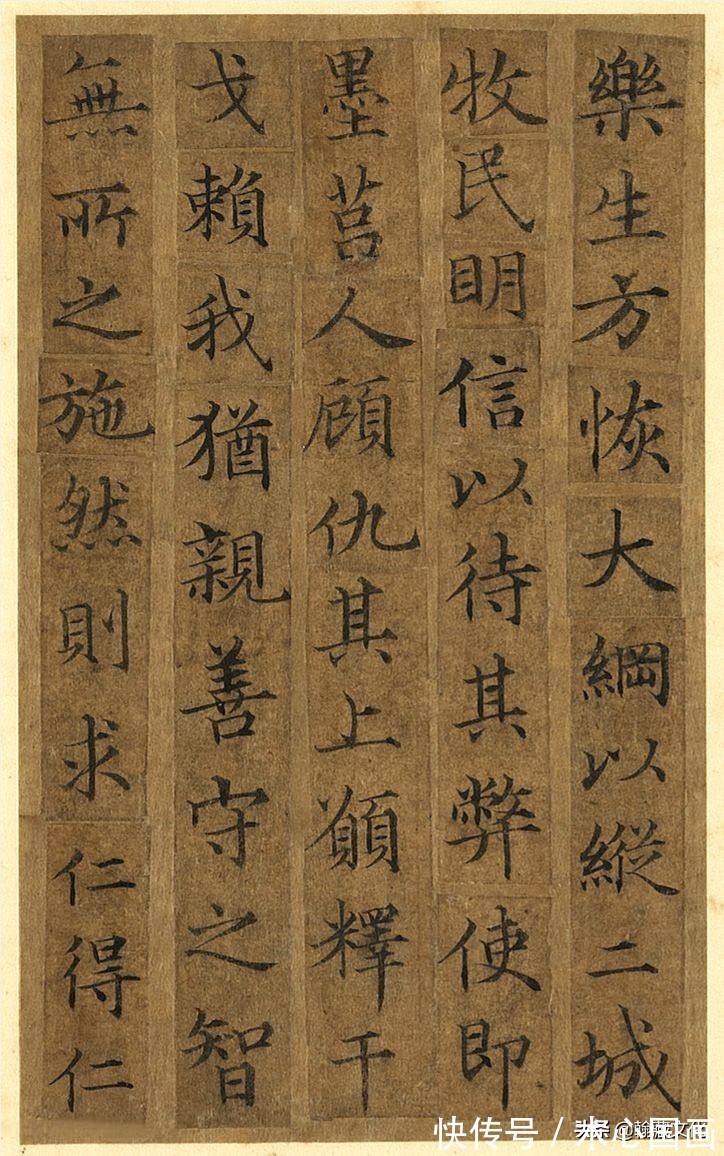 樂生方恢大綱以縱二城
牧民明信以待其弊使即
墨莒人顧仇其上願釋干
戈賴我猶親善守之智
無所之施然則求仁得仁
快传号／米心图画
头条 @翰墨文化